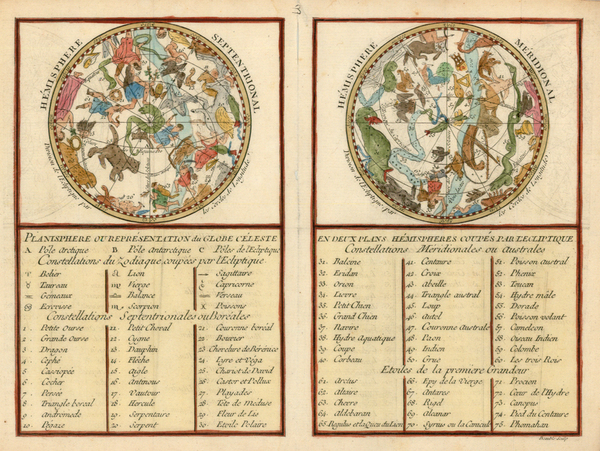 3
HÉMISPHERE SEPTENTRIONAL
Division de l'Ecliptique par les Cercles de Longitude
HÉMISPHERE MÉRIDIONAL
Division de l'Ecliptique par les Cercles de Longitude
PLANISPHERE OU REPRÉSENTATION du GLOBE CÉLESTE
A Pôle arctique B Pôle antarctique C Pôles de l'Ecliptique
Constellations du Zodiaque coupées par l'Ecliptique
♈ Belier ♌ Lion Sagittaire
♉ Taureau ♍ Vierge Capricorne
Gémeaux Balance Verseau
Ecrevisse Scorpion Poissons
Constellations Septentrionales ou Boréales
1. Petite Ourse 11. Petit Cheval 21. Couronne boréal
2. Grande Ourse 12. Cygne 22. Bouvier
3. Dragon 13. Dauphin 23. Chevelure de Bérénice
4. Cephé 14. Flêche 24. Lyre et Véga
5. Cassiopée 15. Aigle 25. Chariot de David
6. Cocher 16. Antinous 26. Castor et Pollux
7. Persée 17. Vautour 27. Playades
8. Triangle boreal 18. Hercule 28. Tête de Meduse
9. Andromede 19. Serpentaire 29. Fleur de Lis
10. Pegaze 20. Serpent 30. Etoile Polaire
EN DEUX PLANS HÉMISPHERES COUPÉS PAR L'ECLIPTIQUE
Constellations Meridionales ou Australes
31. Baleine 41. Centaure 51. Poisson austral
32. Eridan 42. Croix 52. Phenix
33. Orion 43. Abeille 53. Toucan
34. Lievre 44. Triangle austral 54. Hydre mâle
35. Petit Chien 45. Loup 55. Dorade
36. Grand Chien 46. Autel 56. Poisson volant
37. Navire 47. Couronne australe 57. Cameleon
38. Hydre Aquatique 48. Paon 58. Oiseau Indien
39. Coupe 49. Indien 59. Colombe
40. Corbeau 50. Grue 60. Les trois Rois
Etoiles de la premiere Grandeur
61. Arcius 66. Epy de la Vierge 71. Procion
62. Altaire 67. Antares 72. Cœur de l'Hydre
63. Chevre 68. Rigel 73. Canopus
64. Aldebaran 69. Alcanar 74. Pied du Centaure
65. Regulus et la Queue du Lion 70. Syrius ou la Canicule 75. Phomahan